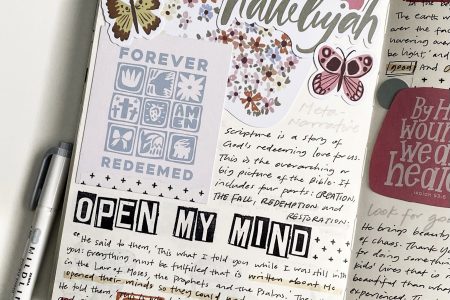 hallelujah
FOREVER
AMEN
REDEEMED
Meta-
Narrative
Scripture is a story of
God's redeeming love for us.
This is the overarching or
big picture of the Bible. It
includes four parts: CREATION,
THE FALL, REDEMPTION and
RESTORATION.
OPEN MY MIND
"He said to them, 'This is what I told you while I was still with
you: Everything must be fulfilled that is written about Me
in the Law of Moses, the Prophets and the Psalms.' The
opened their minds so they could
He told them
The earth w
over the fac
hovering over
be light,' and
good
By H
wour
we a
heale
ISAIAH 53:5
Look for good
He brings beauty
of chaos. Thank
kids' lives that is
beautiful than wha
experienced. T
MIDLI